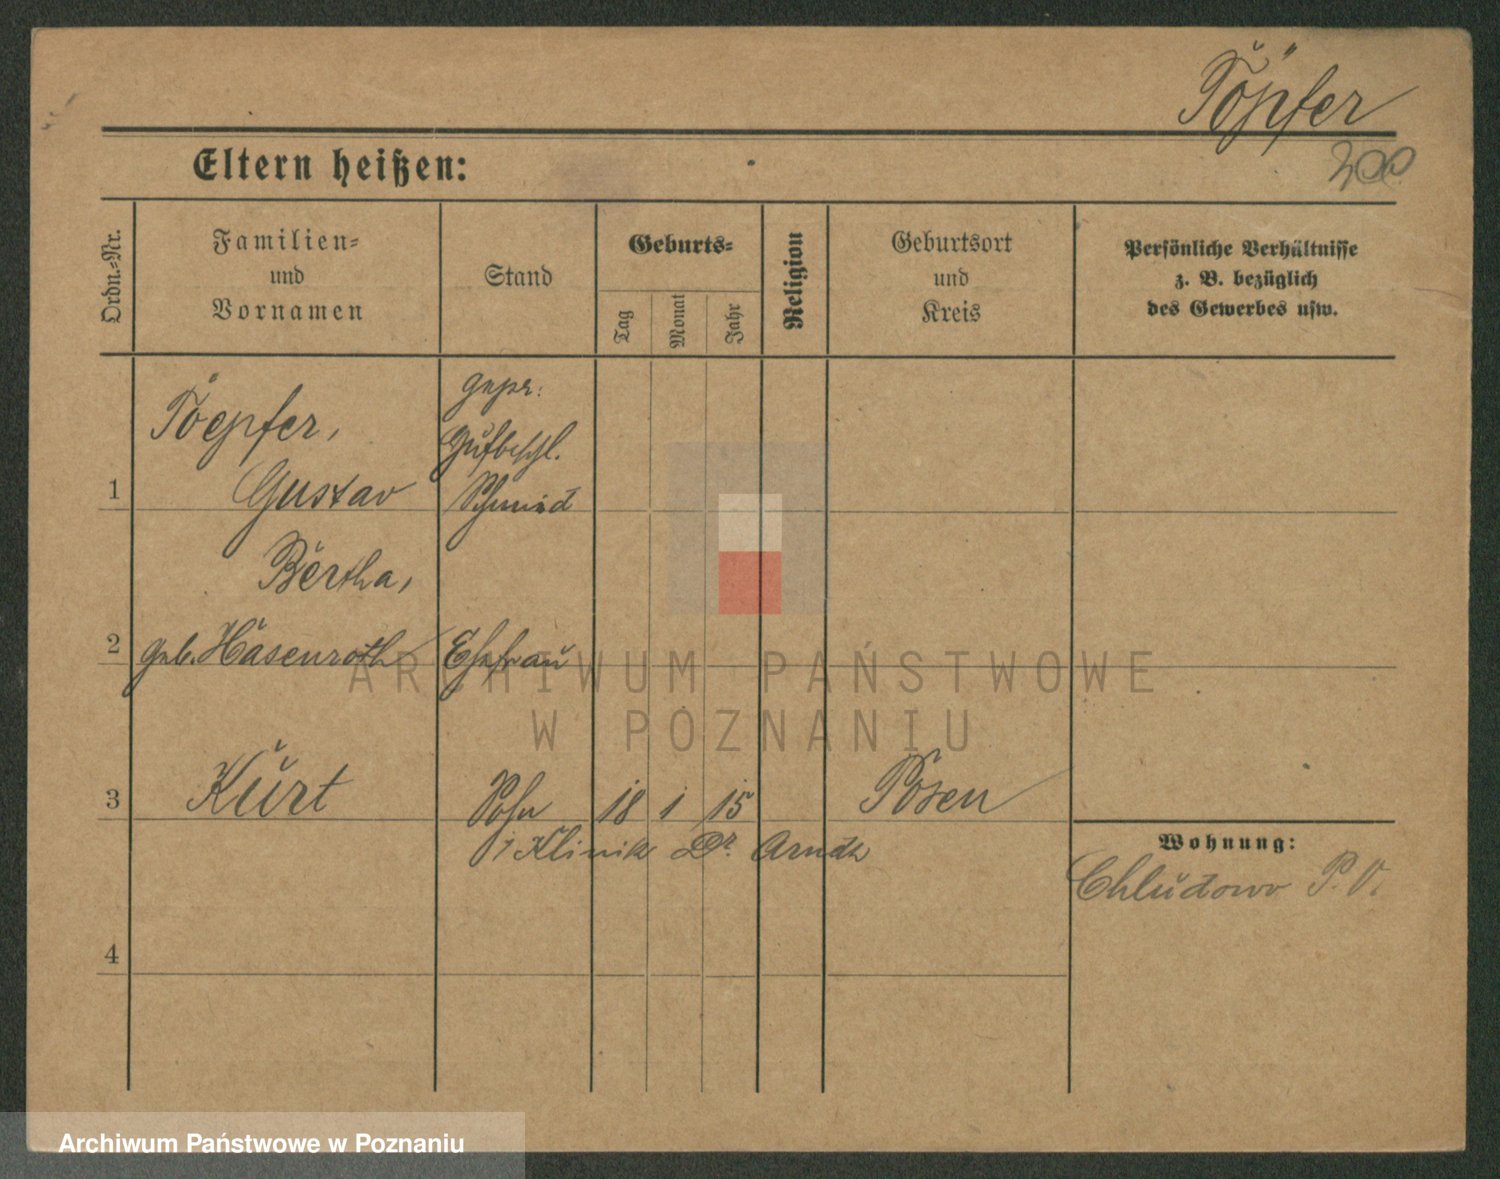 Töpfer
200
Eltern heißen:
Ordn.-Nr.
Familien-
und
Vornamen
Stand
Geburts-
Tag
Monat
Jahr
Religion
Geburtsort
und
Kreis
Persönliche Verhältnisse
z. B. bezüglich
des Gewerbes usw.
1
Toepfer,
Gustav
gepr.
Hufbeschl.
Schmied
2
Bertha,
geb. Hasenroth
Ehefrau
ARCHIWUM PAŃSTWOWE
W POZNANIU
3
Kurt
Sohn
18
1
15
Posen
i Klinik Dr. Arndt
Wohnung:
Chludowo P. O.
4
Archiwum Państwowe w Poznaniu